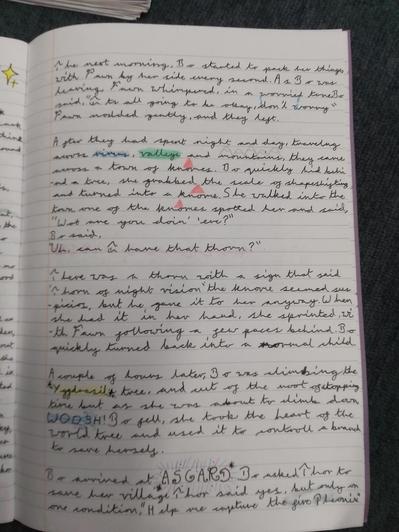 The next morning, Bo started to pack her things,
with Fawn by her side every second. As Bo was
leaving, Fawn whimpered, in a worried tone Bo
said, "it's all going to be okay, don't worry"
Fawn nodded gently, and they left.
After they had spent night and day, traveling
across rivers, valleys and mountains, they came
across a town of knomes. Bo quickly hid behi
-nd a tree, she grabbed the scale of shapeshifting
and turned into a knome. She walked into the
town one of the knomes spotted her and said,
"Wot are you doin' 'ere?"
Bo said,
Uh, can i have that thorn?"
There was a thorn with a sign that said
Thorn of night vision" the knome seemed sus
-picios, but he gave it to her anyway. When
she had it in her hand, she sprinted, wi
-th Fawn following a few paces behind. Bo
quickly turned back into a normal child
A couple of hours later, Bo was climbing the
Yggdrasil tree, and cut of the root of stopping
time but as she was about to climb down,
WOOSH! Bo fell, she took the heart of the
world tree and used it to controll a branch
to save herself.
Bo arrived at ASGARD. Bo asked Thor to
save her village Thor said yes, but only on
one condition, "Help me capture the fire Pheonix"